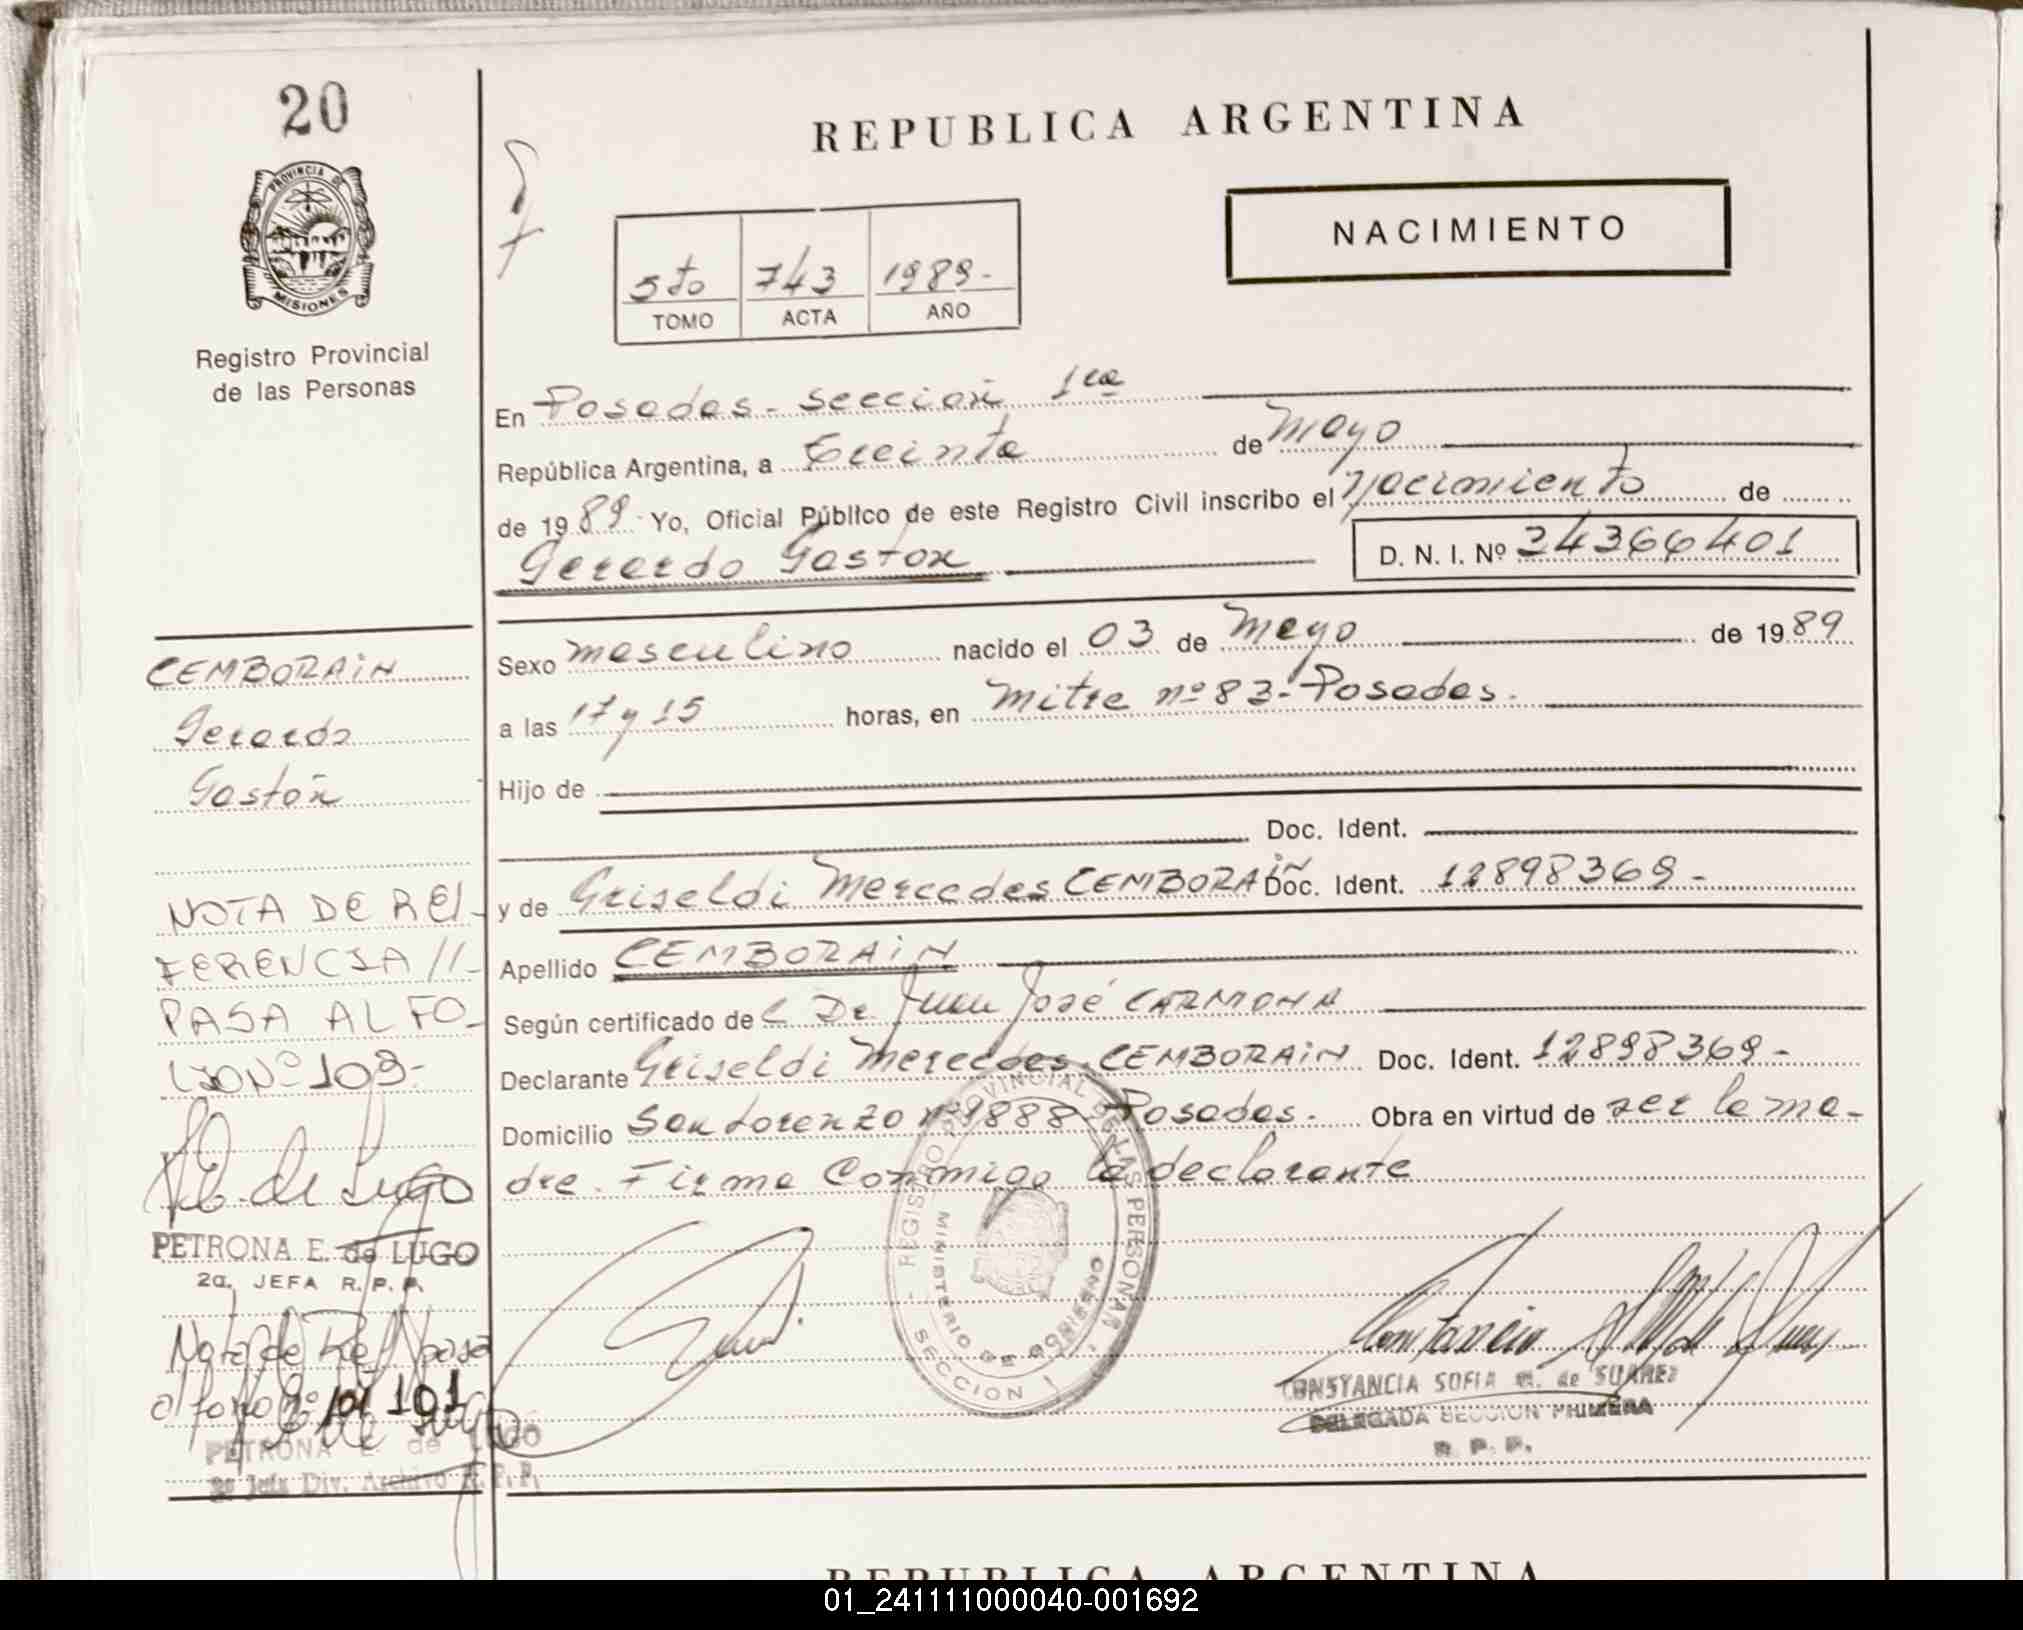 20
PROVINCIA DE
MISIONES
Registro Provincial
de las Personas
REPUBLICA ARGENTINA
NACIMIENTO
5to 743 1989-
TOMO ACTA AÑO
En Posadas - sección 1ra
República Argentina, a treinta de Mayo
de 1989 - Yo, Oficial Público de este Registro Civil inscribo el Nacimiento de
Gerardo Gaston D. N. I. Nº 34366401
Sexo masculino nacido el 03 de Mayo de 1989
a las 17 y 15 horas, en Mitre nº 83 - Posadas.
Hijo de
Doc. Ident.
y de Griseldi Mercedes CEMBORAIN Doc. Ident. 12898369-
Apellido CEMBORAIN
Según certificado de L Dr Juan José CARMONA
Declarante Griseldi Mercedes CEMBORAIN Doc. Ident. 12898369-
Domicilio San Lorenzo nº 1888 - Posadas. Obra en virtud de ser la ma-
dre. Firma Conmigo la declarante
CEMBORAIN
Gerardo
Gastón
NOTA DE REI-
FERENCIA //-
PASA AL FO-
LIO Nº 109-
P. E. de Lugo
PETRONA E. de LUGO
2a. JEFA R. P. P.
Nota de Ref. pasa
al folio nº 101 101
PETRONA E. de LUGO
2a Jefa Div. Archivo R. P. P.
REGISTRO PROVINCIAL DE LAS PERSONAS
MINISTERIO DE GOBIERNO
SECCION 1
CONSTANCIA SOFIA M. de SUAREZ
DELEGADA SECCION PRIMERA
R. P. P.
REPUBLICA ARGENTINA
01_241111000040-001692